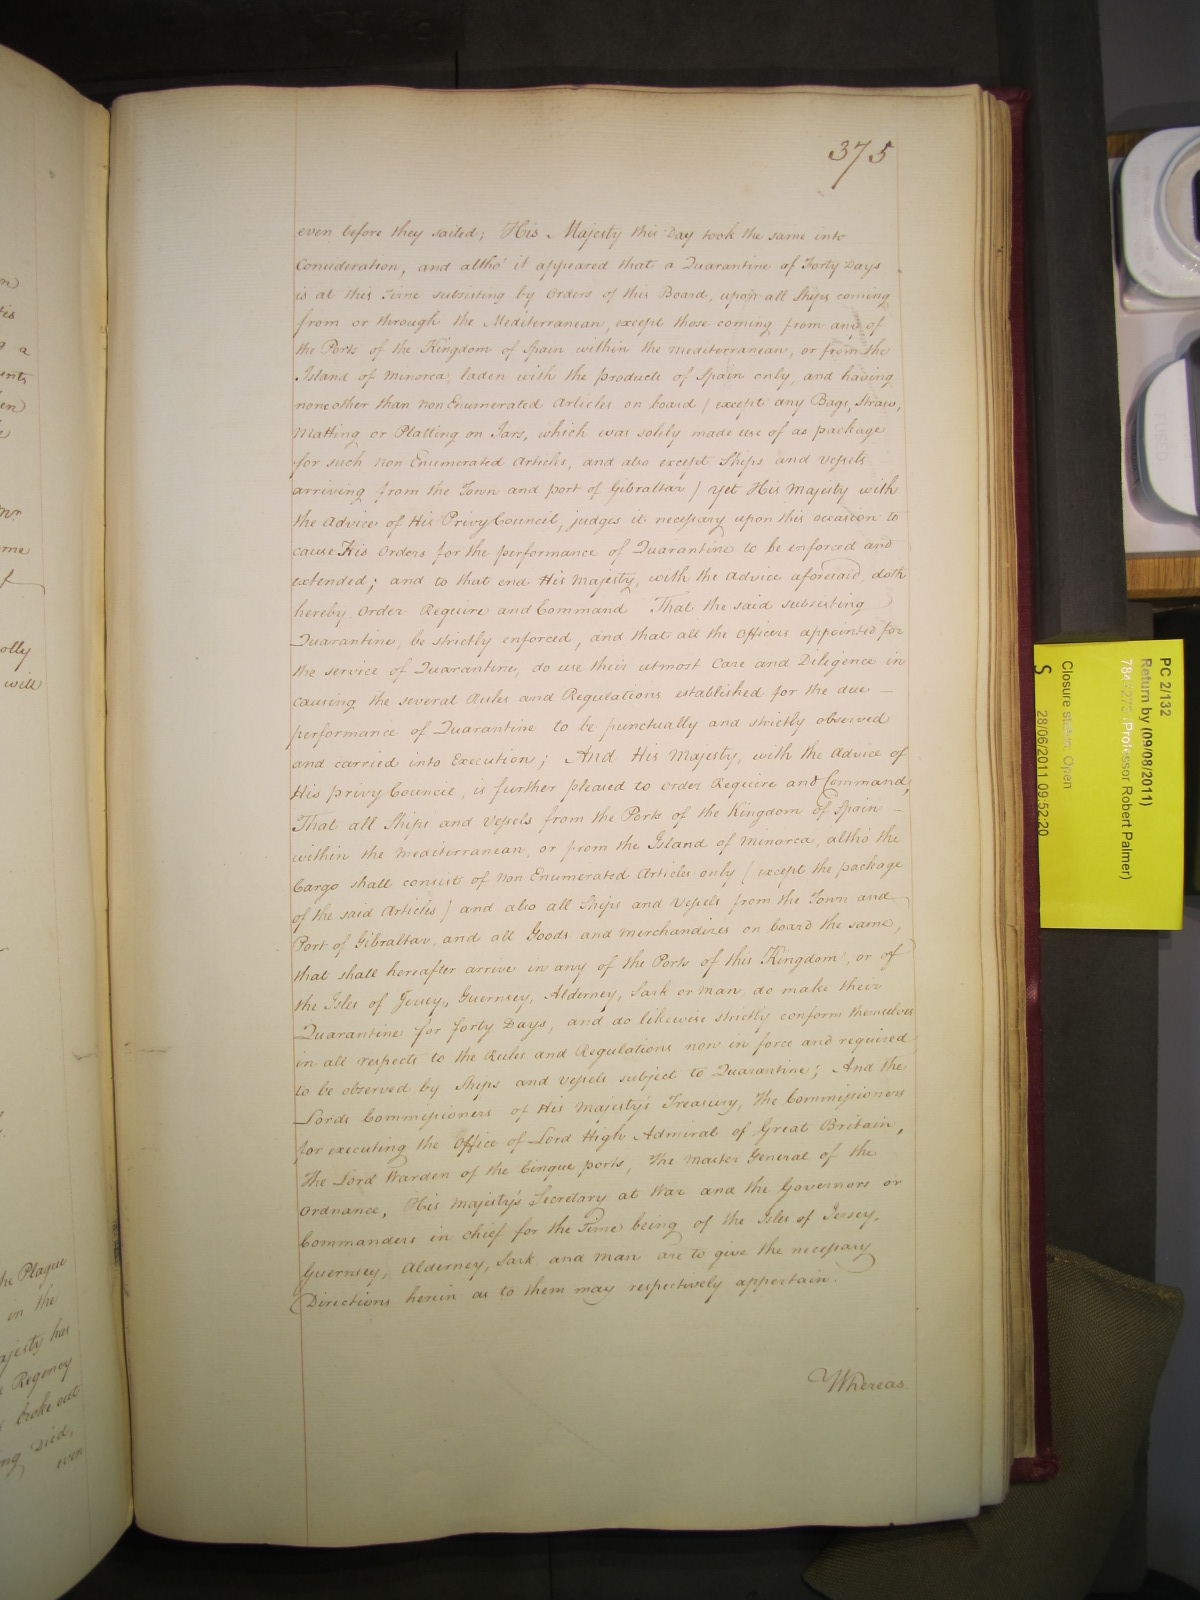 375
even before they sailed; His Majesty this Day took the same into
Consideration, and altho' it appeared that a Quarantine of Forty Days
is at this Time subsisting by Orders of this Board, upon all Ships coming
from or through the Mediterranean, except those coming from any of
the Ports of the Kingdom of Spain within the Mediterranean, or from the
Island of Minorca, laden with the products of Spain only, and having
none other than non Enumerated Articles on board (except any Bags, Straw,
Matting or Platting on Jars, which was solely made use of as package
for such non Enumerated Articles, and also except Ships and Vessels
arriving from the Town and port of Gibraltar) yet His Majesty with
the Advice of His Privy Council, judges it necessary upon this occasion to
cause His Orders for the performance of Quarantine to be enforced and
extended; and to that end His Majesty, with the Advice aforesaid, doth
hereby Order Require and Command That the said subsisting
Quarantine, be strictly enforced, and that all the Officers appointed for
the service of Quarantine, do use their utmost Care and Diligence in
causing the several Rules and Regulations established for the due —
performance of Quarantine to be punctually and strictly observed
and carried into Execution; And His Majesty, with the Advice of
His privy Council, is further pleased to order Require and Command,
That all Ships and Vessels from the Ports of the Kingdom of Spain —
within the Mediterranean, or from the Island of Minorca, altho the
Cargo shall consist of non Enumerated Articles only (except the package
of the said Articles) and also all Ships and Vessels from the Town and
Port of Gibraltar, and all Goods and Merchandizes on board the same,
that shall hereafter arrive in any of the Ports of this Kingdom, or of
the Isles of Jersey, Guernsey, Alderney, Sark or Man, do make their
Quarantine for forty Days, and do likewise strictly conform themselves
in all respects to the Rules and Regulations now in force and required
to be observed by Ships and Vessels subject to Quarantine; And the
Lords Commissioners of His Majesty's Treasury, The Commissioners
for executing the Office of Lord High Admiral of Great Britain,
The Lord Warden of the Cinque ports, the Master General of the
Ordnance, His Majesty's Secretary at War and the Governors or
Commanders in chief for the Time being of the Isles of Jersey,
Guernsey, Alderney, Sark and Man are to give the necessary
Directions herein as to them may respectively appertain.
Whereas
he Plague
in the
ajesty has
Regency
broke out
ng Died,
even
olly
will
PC 2/132
Return by (09/08/2011)
(Professor Robert Palmer)
Closure status: Open
28/06/2011 09:52:20
S